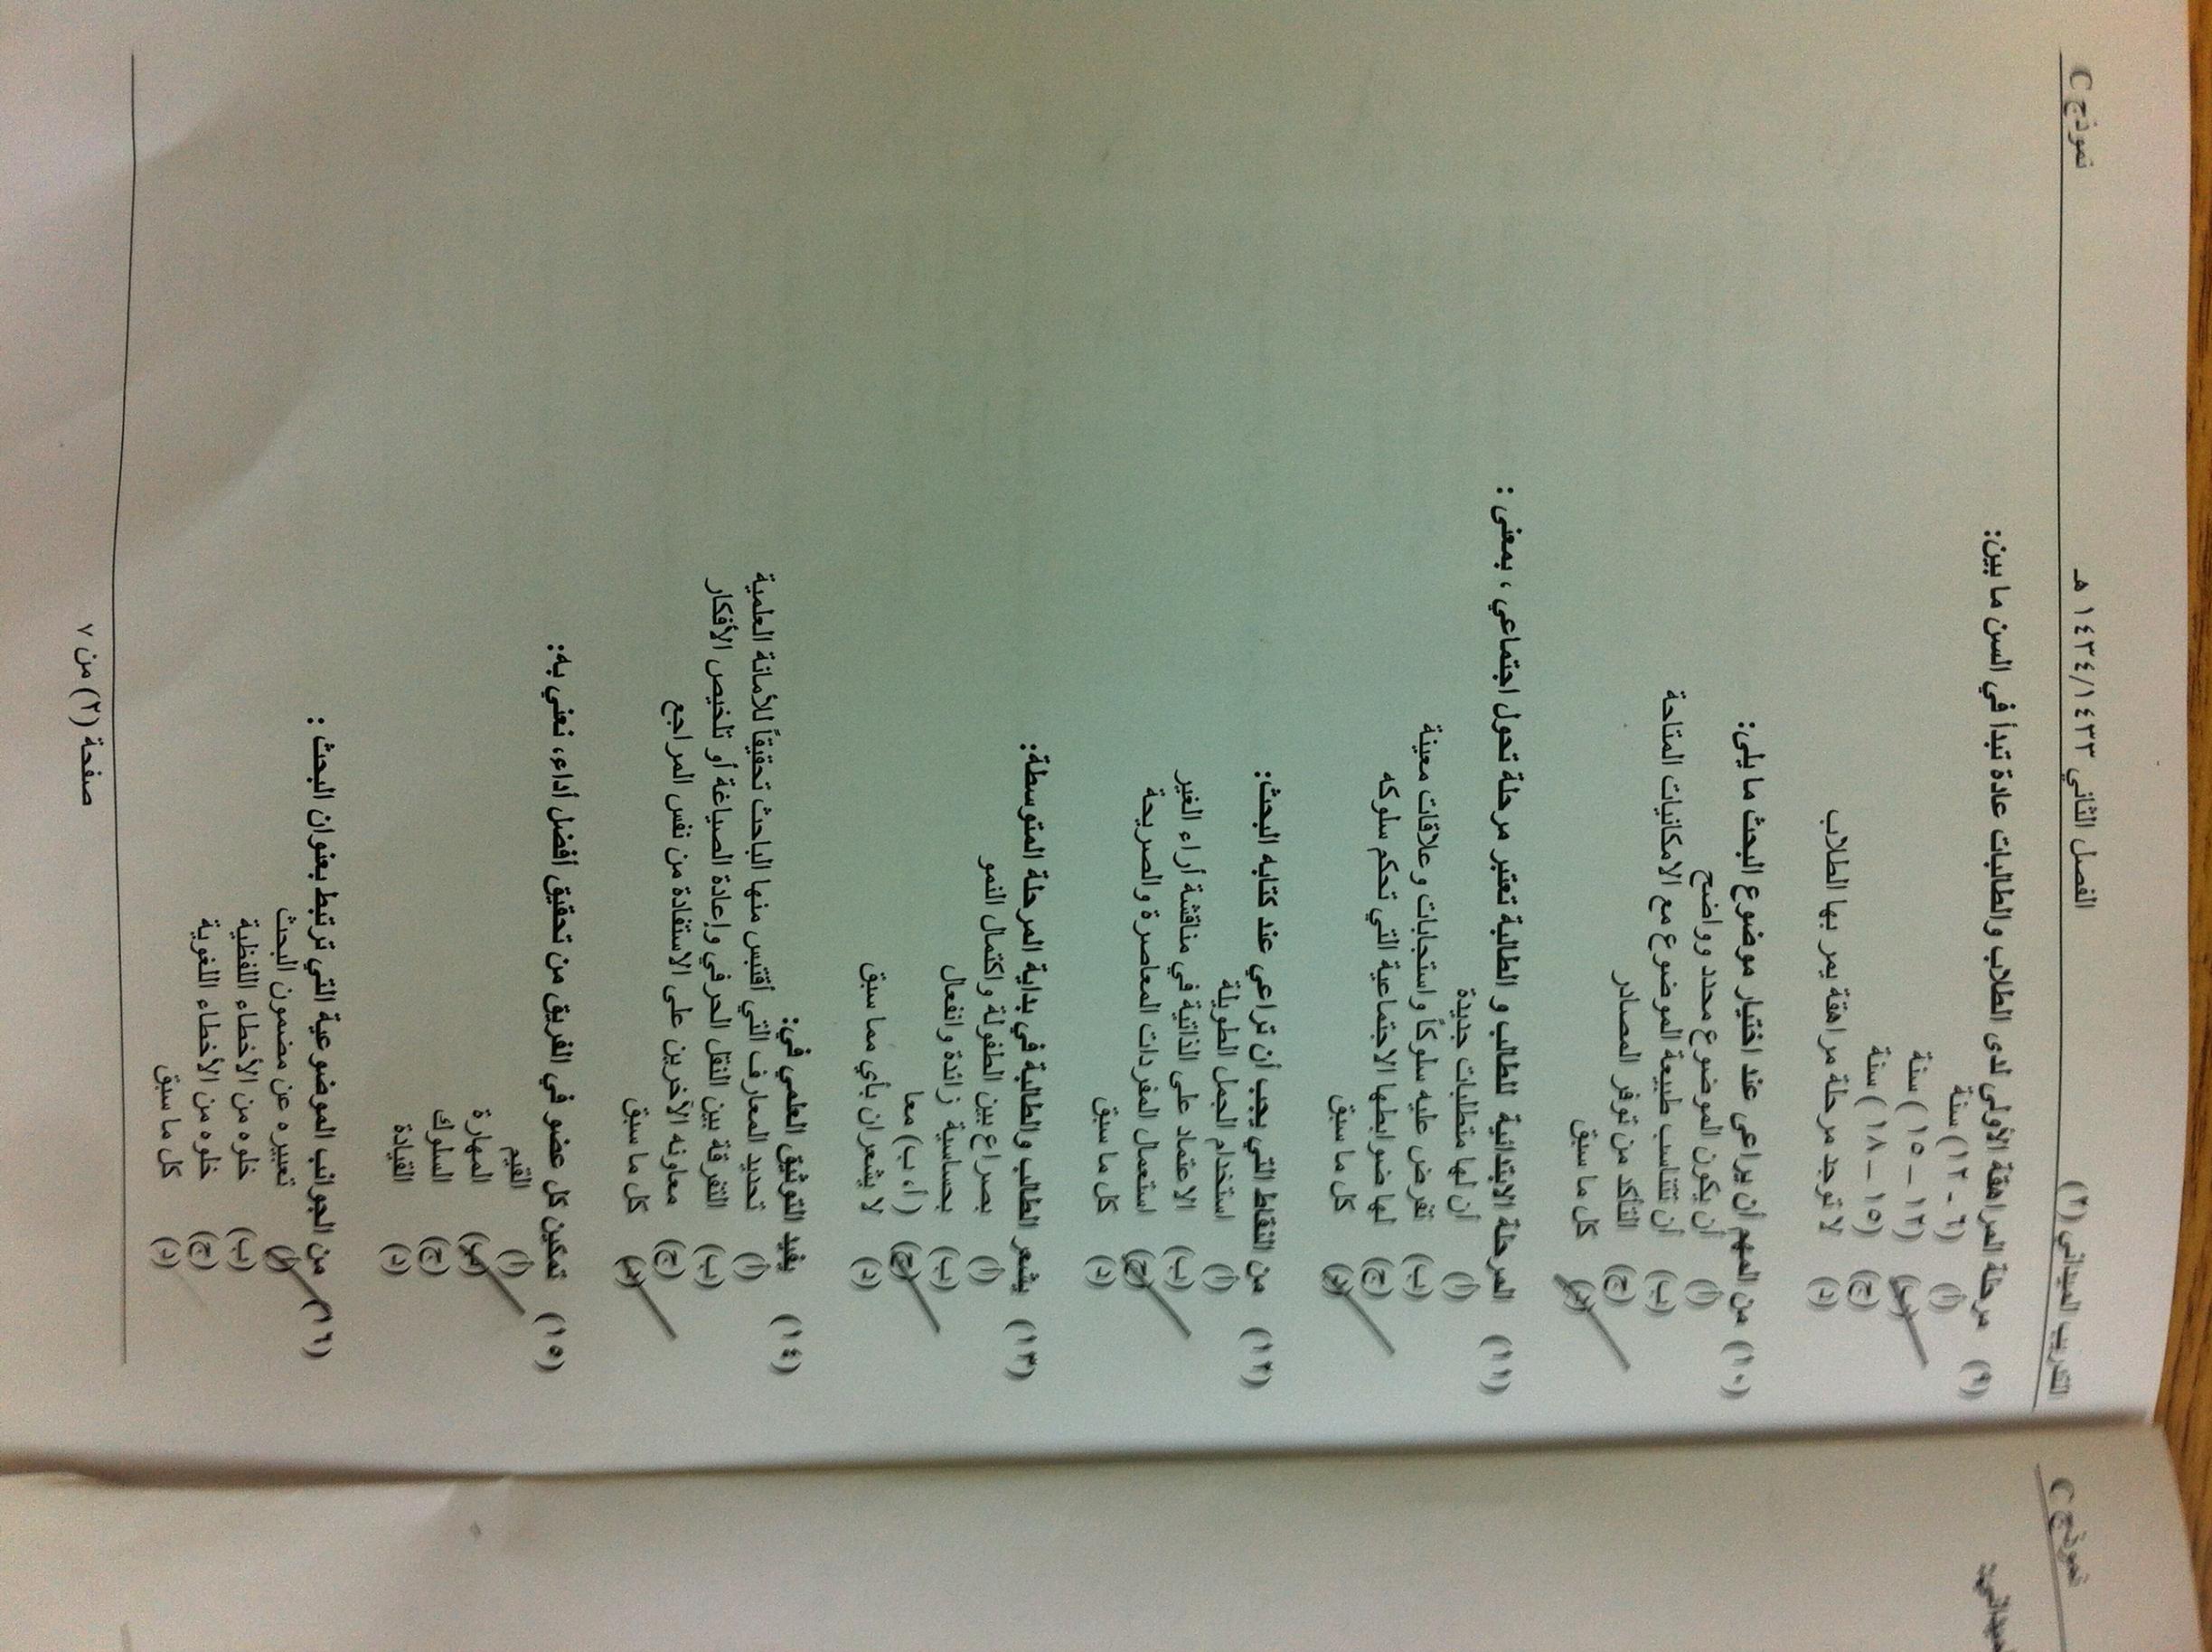 التدريب الميداني (٢) الفصل الثاني ١٤٣٤/١٤٣٣ هـ نموذج C
(٩) مرحلة المراهقة الأولى لدى الطلاب والطالبات عادة تبدأ في السن ما بين:
(أ) (٦ - ١٢) سنة
(ب) (١٢ – ١٥) سنة
(ج) (١٥ – ١٨) سنة
(د) لا توجد مرحلة مراهقة يمر بها الطلاب
(١٠) من المهم أن يراعى عند اختيار موضوع البحث ما يلي:
(أ) أن يكون الموضوع محدد وواضح
(ب) أن تتناسب طبيعة الموضوع مع الامكانيات المتاحة
(ج) التأكد من توفر المصادر
(د) كل ما سبق
(١١) المرحلة الابتدائية للطالب و الطالبة تعتبر مرحلة تحول اجتماعي ، بمعنى :
(أ) أن لها متطلبات جديدة
(ب) تفرض عليه سلوكاً واستجابات وعلاقات معينة
(ج) لها ضوابطها الاجتماعية التي تحكم سلوكه
(د) كل ما سبق
(١٢) من النقاط التي يجب أن تراعي عند كتابه البحث:
(أ) استخدام الجمل الطويلة
(ب) الاعتماد على الذاتية في مناقشة أراء الغير
(ج) استعمال المفردات المعاصرة والصريحة
(د) كل ما سبق
(١٣) يشعر الطالب والطالبة في بداية المرحلة المتوسطة:
(أ) بصراع بين الطفولة واكتمال النمو
(ب) بحساسية زائدة وانفعال
(ج) (أ، ب) معا
(د) لا يشعران بأي مما سبق
(١٤) يفيد التوثيق العلمي في:
(أ) تحديد المعارف التي أقتبس منها الباحث تحقيقاً للأمانة العلمية
(ب) التفرقة بين النقل الحرفي وإعادة الصياغة أو تلخيص الأفكار
(ج) معاونه الآخرين على الاستفادة من نفس المراجع
(د) كل ما سبق
(١٥) تمكين كل عضو في الفريق من تحقيق أفضل أداء، نعني به:
(أ) القيم
(ب) المهارة
(ج) السلوك
(د) القيادة
(١٦) من الجوانب الموضوعية التي ترتبط بعنوان البحث :
(أ) تعبيره عن مضمون البحث
(ب) خلوه من الأخطاء اللفظية
(ج) خلوه من الأخطاء اللغوية
(د) كل ما سبق
صفحة (٢) من ٧
نموذج C